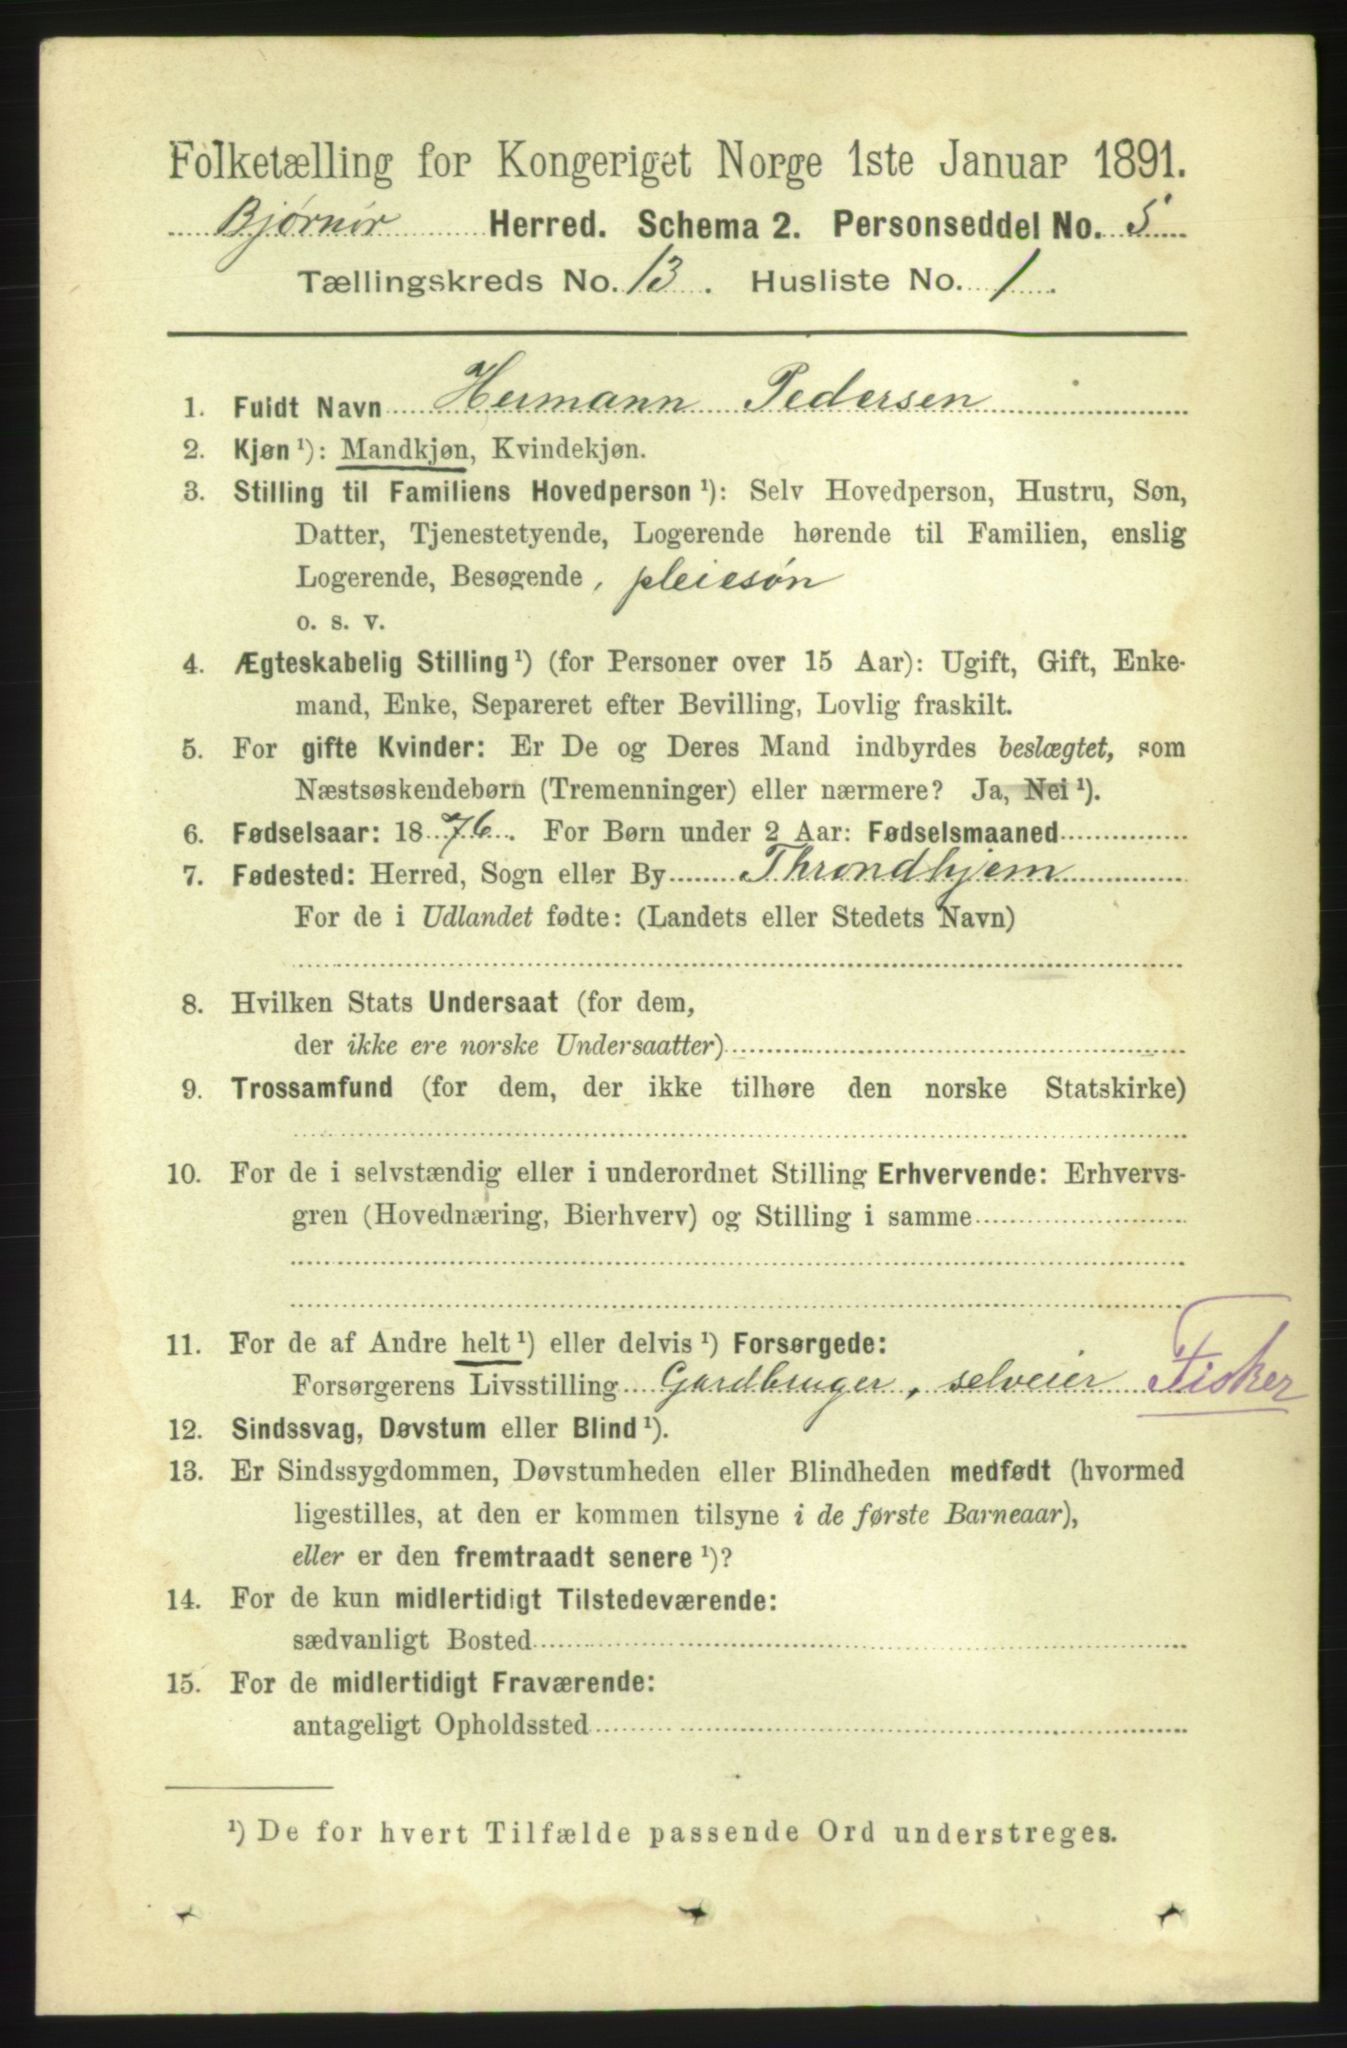 Folketælling for Kongeriget Norge 1ste Januar 1891.
Bjørnør Herred. Schema 2. Personseddel No. 5
Tællingskreds No. 13. Husliste No. 1.
1. Fuldt Navn Hermann Pedersen
2. Kjøn ¹): Mandkjøn, Kvindekjøn.
3. Stilling til Familiens Hovedperson ¹): Selv Hovedperson, Hustru, Søn,
Datter, Tjenestetyende, Logerende hørende til Familien, enslig
Logerende, Besøgende, pleiesøn
o. s. v.
4. Ægteskabelig Stilling ¹) (for Personer over 15 Aar): Ugift, Gift, Enke-
mand, Enke, Separeret efter Bevilling, Lovlig fraskilt.
5. For gifte Kvinder: Er De og Deres Mand indbyrdes beslægtet, som
Næstsøskendebørn (Tremenninger) eller nærmere? Ja, Nei ¹).
6. Fødselsaar: 1876. For Børn under 2 Aar: Fødselsmaaned
7. Fødested: Herred, Sogn eller By Throndhjem
For de i Udlandet fødte: (Landets eller Stedets Navn)
8. Hvilken Stats Undersaat (for dem,
der ikke ere norske Undersaatter)
9. Trossamfund (for dem, der ikke tilhøre den norske Statskirke)
10. For de i selvstændig eller i underordnet Stilling Erhvervende: Erhvervs-
gren (Hovednæring, Bierhverv) og Stilling i samme
11. For de af Andre helt ¹) eller delvis ¹) Forsørgede:
Forsørgerens Livsstilling Gardbruger, selveier Fisker
12. Sindssvag, Døvstum eller Blind ¹).
13. Er Sindssygdommen, Døvstumheden eller Blindheden medfødt (hvormed
ligestilles, at den er kommen tilsyne i de første Barneaar),
eller er den fremtraadt senere ¹)?
14. For de kun midlertidigt Tilstedeværende:
sædvanligt Bosted
15. For de midlertidigt Fraværende:
antageligt Opholdssted
¹) De for hvert Tilfælde passende Ord understreges.